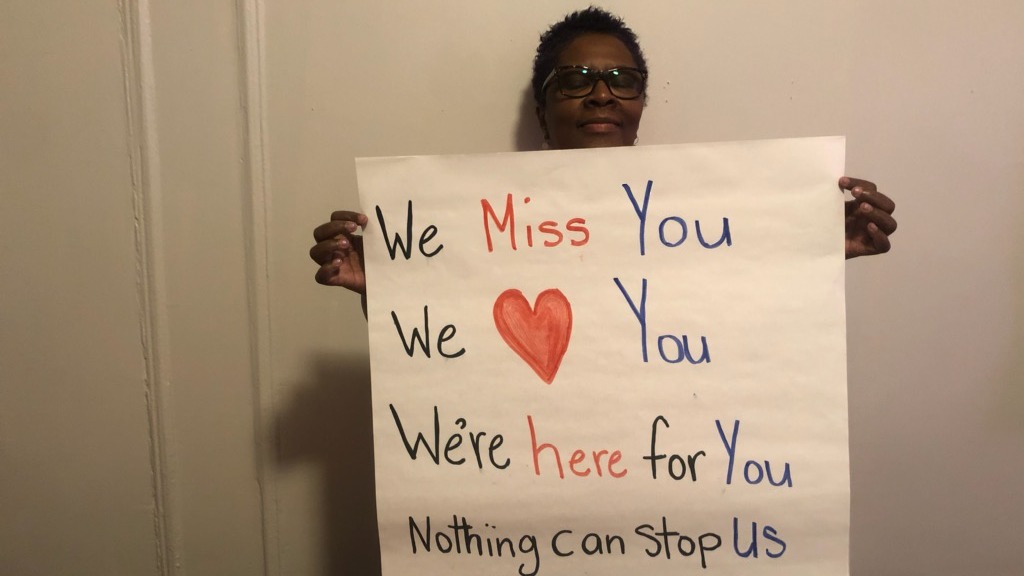 We Miss You
We ❤ You
We're here for You
Nothing can stop us